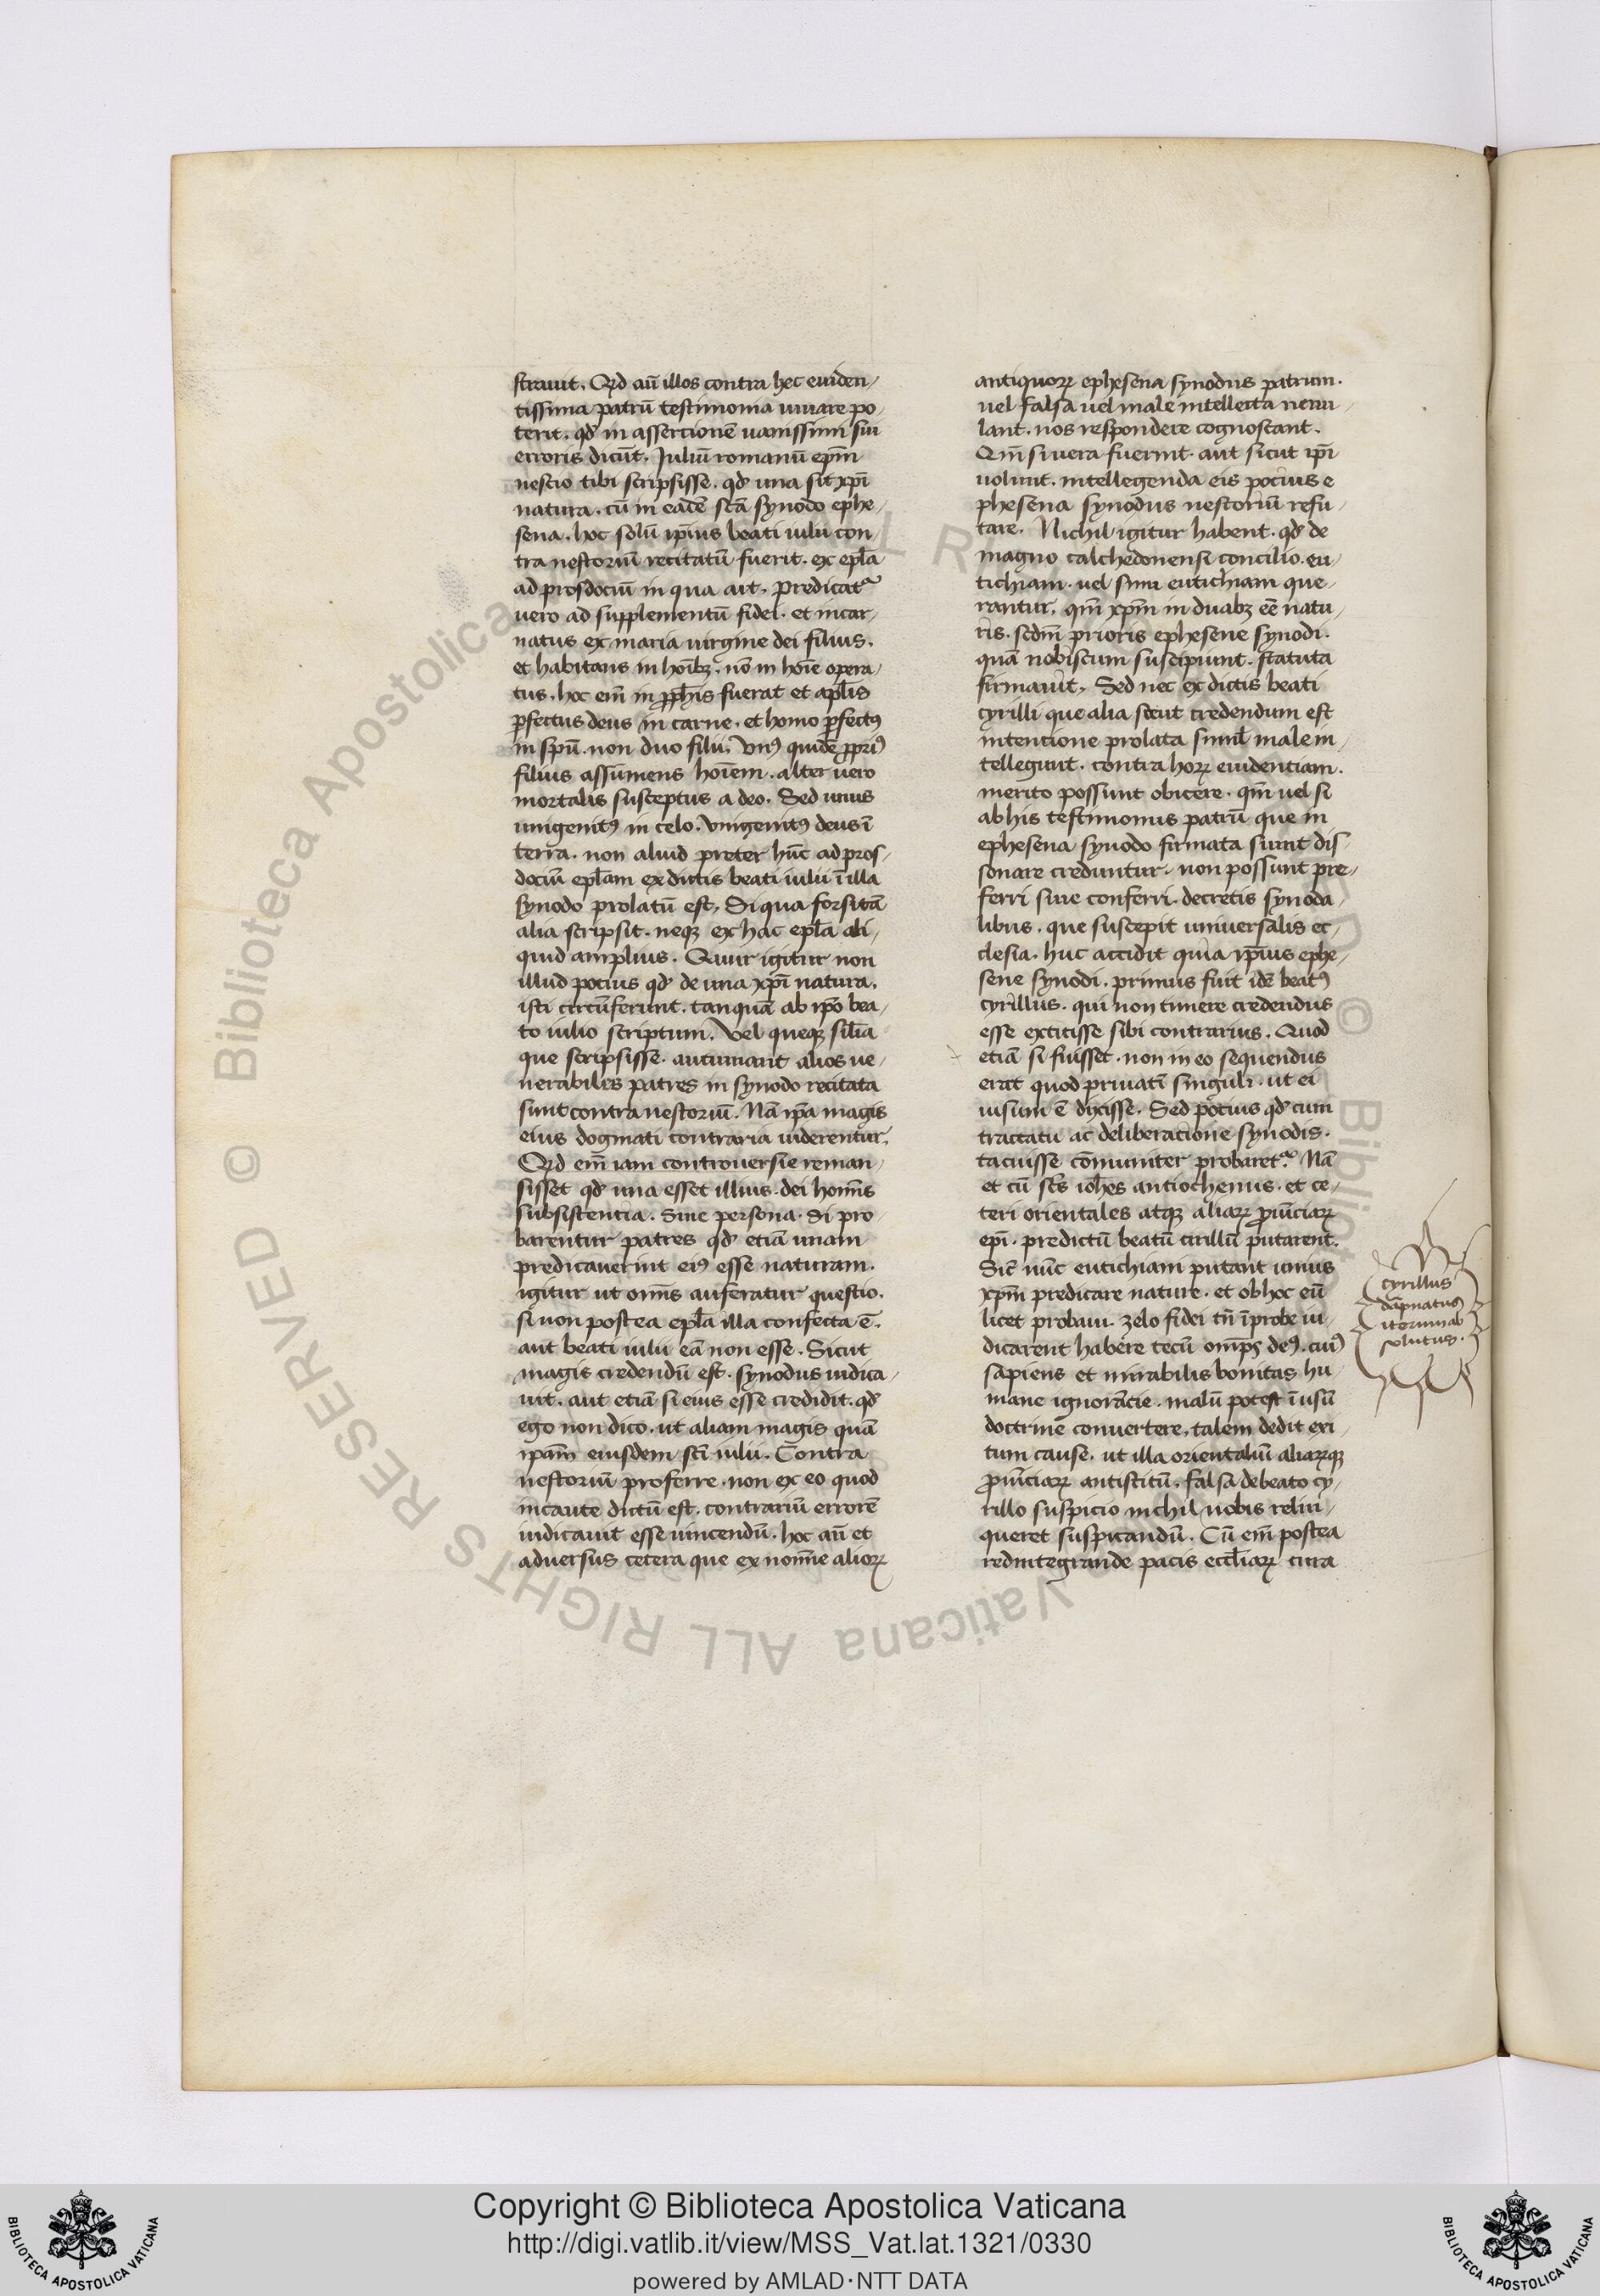 strauit. Qid aū illos contra hec euiden-
tissima patrū testimonia iuuare po-
terit. qd' in assertionē uanissimi sui
erroris dicūt. Juliū romanū ep̄m
nescio tibi scripsisse. qd' una sit xp̄i
natura. cū in eadē sc̄a synodo ephe-
sena. hoc solū ip̄ius beati iulii con-
tra nestoriū recitatū fuerit. ex ep̄la
ad prosdociū in qua ait. Predicat'
uero ad supplementū fidei. et incar-
natus ex maria uirgine dei filius.
et habitans in hoībꝫ. nō in hoīe opera-
tus. hoc em̄ in ꝓph̄is fuerat et apl̄is
ꝑfectus deus in carne. et homo ꝑfectꝰ
in spū. non duo filii. Vnꝰ quidē ꝓpriꝰ
filius assumens hoīem. alter uero
mortalis susceptus a deo. Sed unus
unigenitꝰ in celo. Vnigenitꝰ deus ī
terra. non aliud preter hūc ad pros-
dociū ep̄lam ex dictis beati iulii ī illa
synodo prolatū est. Si qua forsitā
alia scripsit. neqꝫ ex hac ep̄la ali-
quid amplius. Quur igitur non
illud pocius qd' de una xp̄i natura.
isti circūferunt. tanquā ab ip̄o bea-
to iulio scriptum. Vel queqꝫ sil̄ia
que scripsisse autumant alios ue-
nerabiles patres in synodo recitata
sunt contra nestoriū. Nā ip̄a magis
eius dogmati contraria uiderentur.
Qid em̄ iam controuersie reman-
sisset qd' una esset illius dei hom̄is
subsistentia. Siue persona. Si pro-
barentur patres qd' etiā unam
predicauerint eiꝰ esse naturam.
igitur ut om̄is auferatur questio.
si non postea ep̄la illa confecta ē.
aut beati iulii eā non esse. Sicut
magis credendū est. synodus iudica-
uit. aut etiā si eius esse credidit. qd'
ego non dico. ut aliam magis quā
ip̄am eiusdem sc̄i iulii. Contra
nestoriū proferre. non ex eo quod
incaute dictū est. contrariū errorē
iudicauit esse uincendū. hoc aū et
aduersus cetera que ex nom̄ie alioꝝ
antiquoꝝ ephesena synodus patrum.
uel falsa uel male intellecta uenti-
lant. nos respondere cognoscant.
Qm̄ si uera fuerint. aut sicut ip̄i
uolunt. intellegenda eis pocius e
phesena synodus nestoriū refu-
tare. Nichil igitur habent. qd' de
magno calchedonensi concilio. eu-
tichiani. uel simi eutichiani que-
rantur. qm̄ xp̄m in duabꝫ eē natu-
ris. scd̄m prioris ephesene synodi.
quā nobiscum suscipiunt. statuta
firmauit. Sed nec ex dictis beati
cyrilli que alia sicut credendum est
intentione prolata simil̄ male in-
tellegunt. contra hoꝝ euidentiam.
merito possunt obicere. qm̄ uel si
ab his testimoniis patrū que in
ephesena synodo firmata sunt dis-
sonare creduntur. non possunt pre-
ferri siue conferri. decretis synoda-
libus. que suscepit uniuersalis ec-
clesia. huc accidit quia ip̄ius ephe-
sene synodi. primus fuit idē beatꝰ
cyrillus. qui non timere credendus
esse extitisse sibi contrarius. Quod
etiā si fuisset. non in eo sequendus
erat quod priuatī singuli. ut ei
uisum ē dixisse. Sed potius qd' cum
tractatu ac deliberatione synodis.
tacuisse cōmuniter probaret'. Nā
et cū sc̄s ioh̄es antiochenus. et ce-
teri orientales atqꝫ aliaꝝ ꝓuīciaꝝ
ep̄i. predictū beatū cirillū putarent.
Sic̄ nūc eutichiani putant unius
xp̄m predicare nature. et ob hoc eū
licet probaui. zelo fidei tn̄ īprobe iu-
dicarent habere tecū omp̄s deꝰ. cuiꝰ
sapiens et mirabilis bonitas hu-
mane ignorātie. malū potest ī usū
doctrine conuertere. talem dedit exi-
tum cause. ut illa orientaliū aliaꝝqꝫ
ꝓuīciaꝝ antistitū. falsa de beato cy-
rillo suspicio nichil nobis relin-
queret suspicandū. Cū em̄ postea
redintegrande pacis eccl̄iaꝝ cura
cyrillus
dāpnatus
iterum ab
solutus.
© Biblioteca Apostolica Vaticana ALL RIGHTS RESERVED
Copyright © Biblioteca Apostolica Vaticana
http://digi.vatlib.it/view/MSS_Vat.lat.1321/0330
powered by AMLAD·NTT DATA
BIBLIOTECA APOSTOLICA VATICANA
BIBLIOTECA APOSTOLICA VATICANA